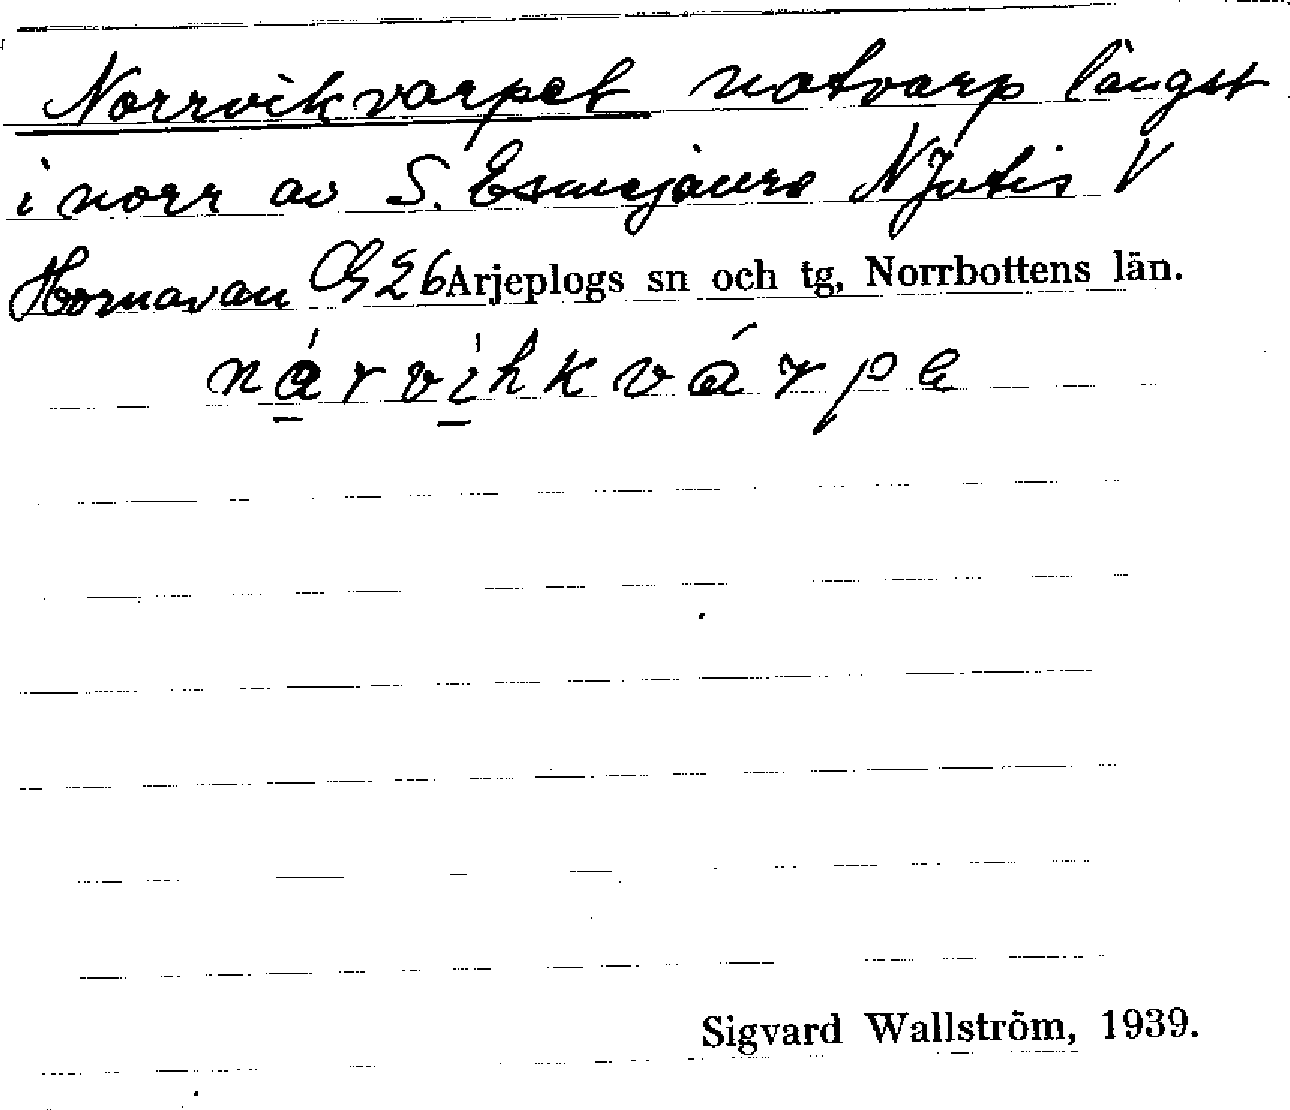 Norrvikvarpet notvarp längst
i norr av S. Esmejaure N Jutis V
Hornavan C 26 Arjeplogs sn och tg, Norrbottens län.
nárvíhkvárpe
Sigvard Wallström, 1939.